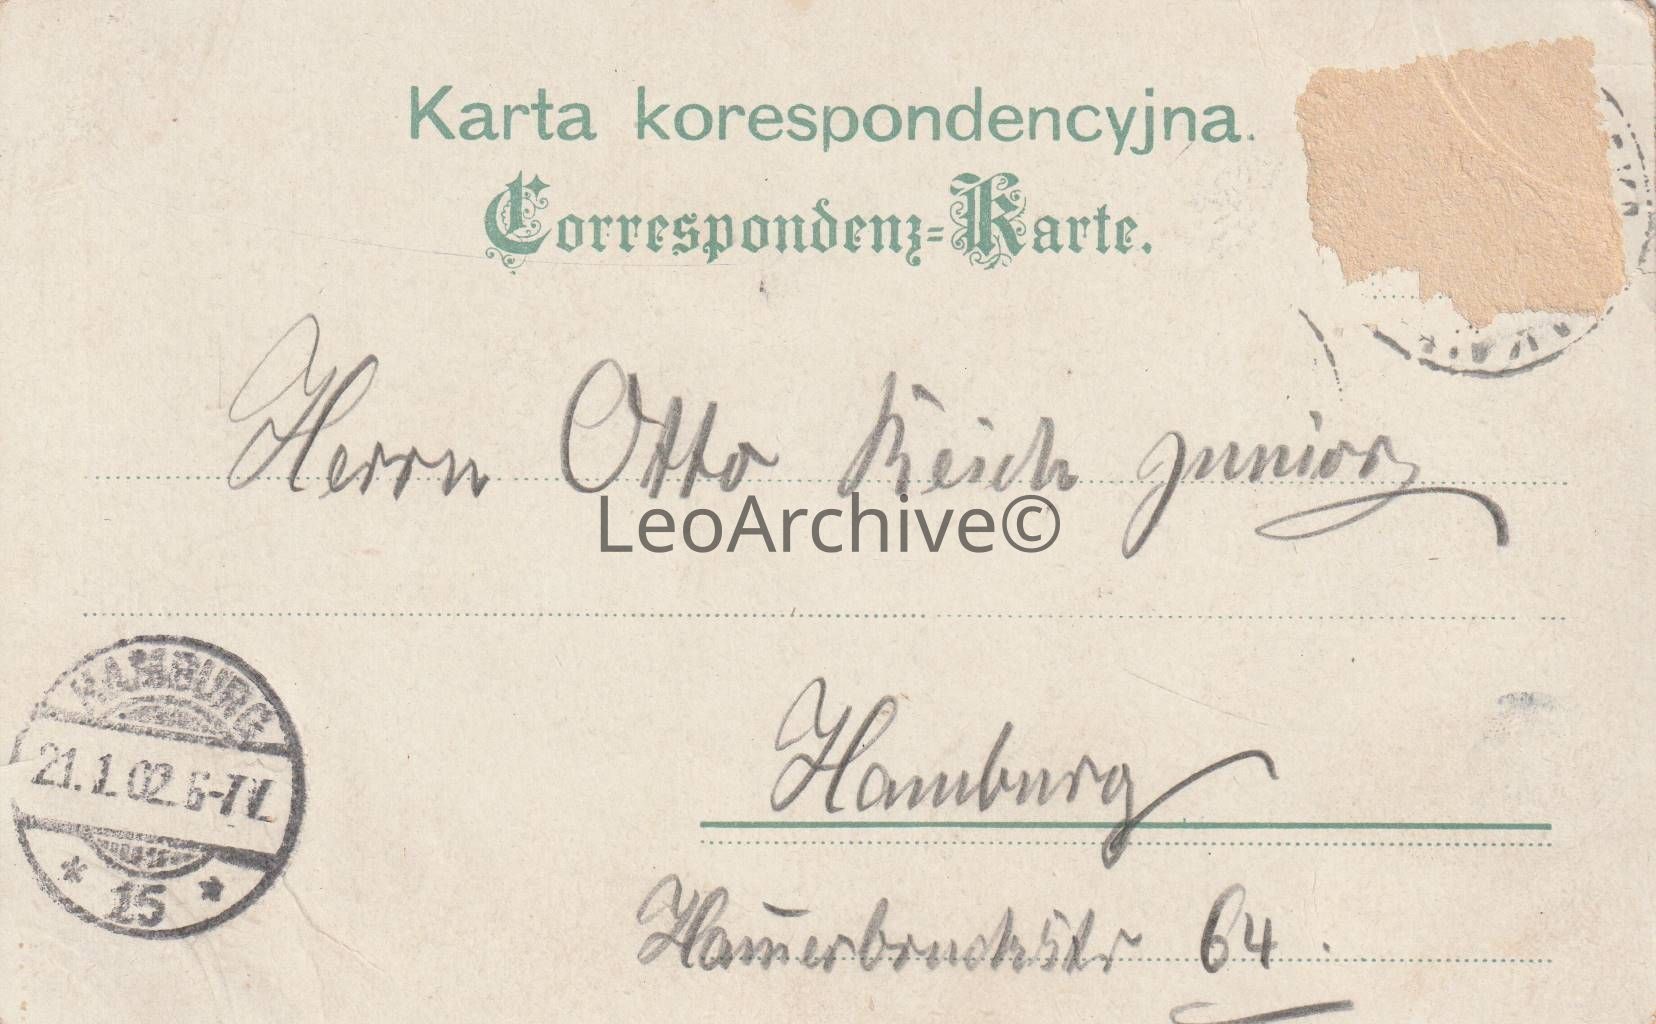 Karta korespondencyjna.
Correspondenz-Karte.
Herrn Otto Reich junior
LeoArchive©
HAMBURG
21.1.02.6-7 V.
* 15 *
Hamburg
64.